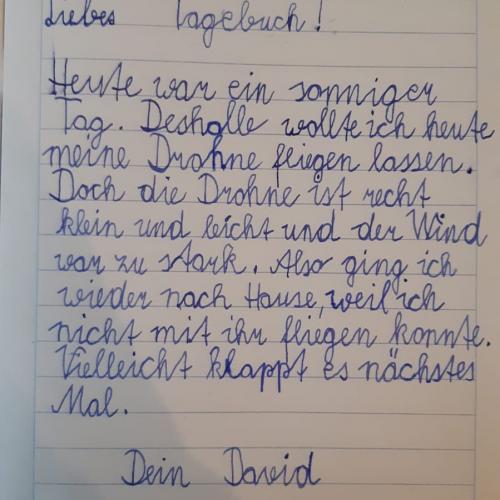 Liebes Tagebuch!
Heute war ein sonniger
Tag. Desholle wollte ich heute
meine Drohne fliegen lassen.
Doch die Drohne ist recht
klein und leicht und der Wind
war zu stark. Also ging ich
wieder nach Hause, weil ich
nicht mit ihr fliegen konnte.
Vielleicht klappt es nächstes
Mal.
Dein David